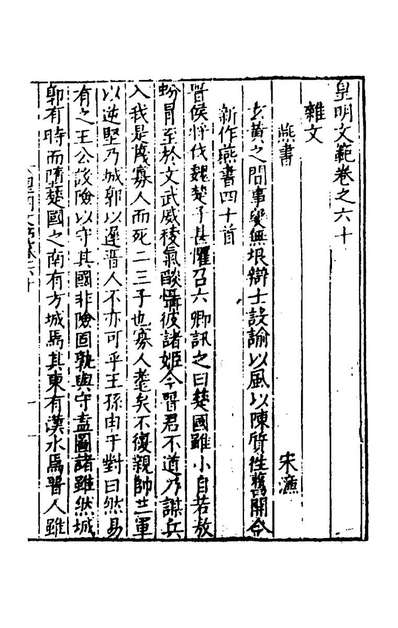 皇明文範卷之六十
雜文
燕書
宋濂
玄黃之間事變無垠辯士設喻以風以陳質往舊開今
新作燕書四十首
晉侯將伐魏楚子甚懼召六卿訊之曰楚國雖小自若敖
蚡冒至於文武威稜氣燄懾彼諸姬今晉君不道乃謀兵
入我是獲寡人而死二三子也寡人耄矣不復親帥三軍
以逆堅乃城郭以遲晉人不亦可乎王孫由于對曰然易
有之王公設險以守其國非險固孰與守盍圖諸雖然城
郭有時而隳楚國之南有方城焉其東有漢水焉晉人雖